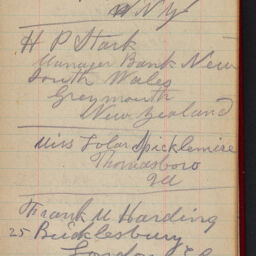 N.Y.
H P Stark
Manager Bank New
South Wales
Greymouth
New Zealand
Miss Lolar Spicklemire
Thomasboro
Ill
Frank M Harding
25 Bucklesbury
London E C